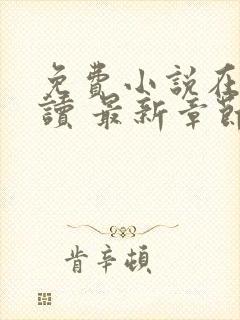 免費小說在
讀 最新章節
肯辛頓